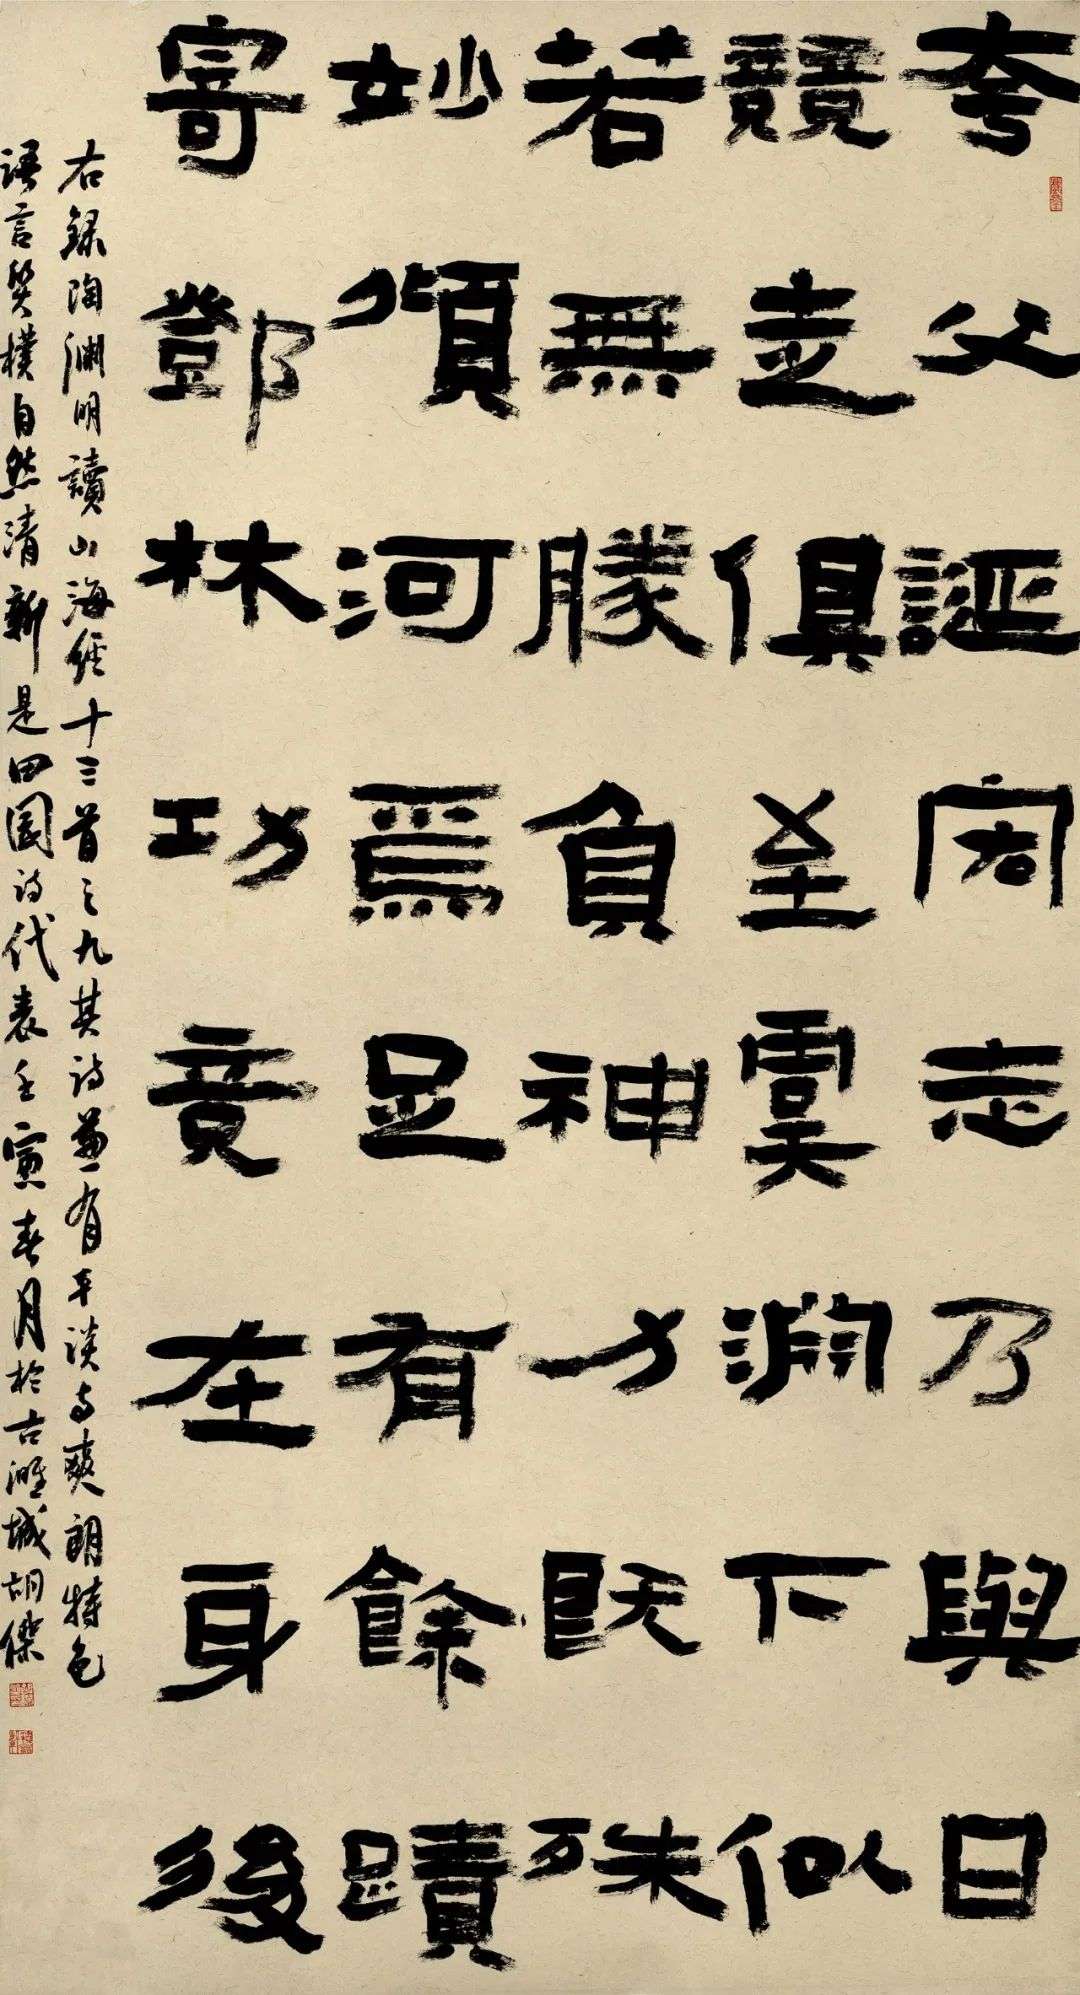 夸父誕宏志乃與日
競走俱至虞淵下似
若無勝負神力既殊
妙傾河焉足有餘蹟
寄鄧林功竟在身後
右錄陶渊明讀山海經十三首之九其詩兼有平淡与爽朗特色
語言質樸自然清新是田園詩代表壬寅春月於古濉城胡傑